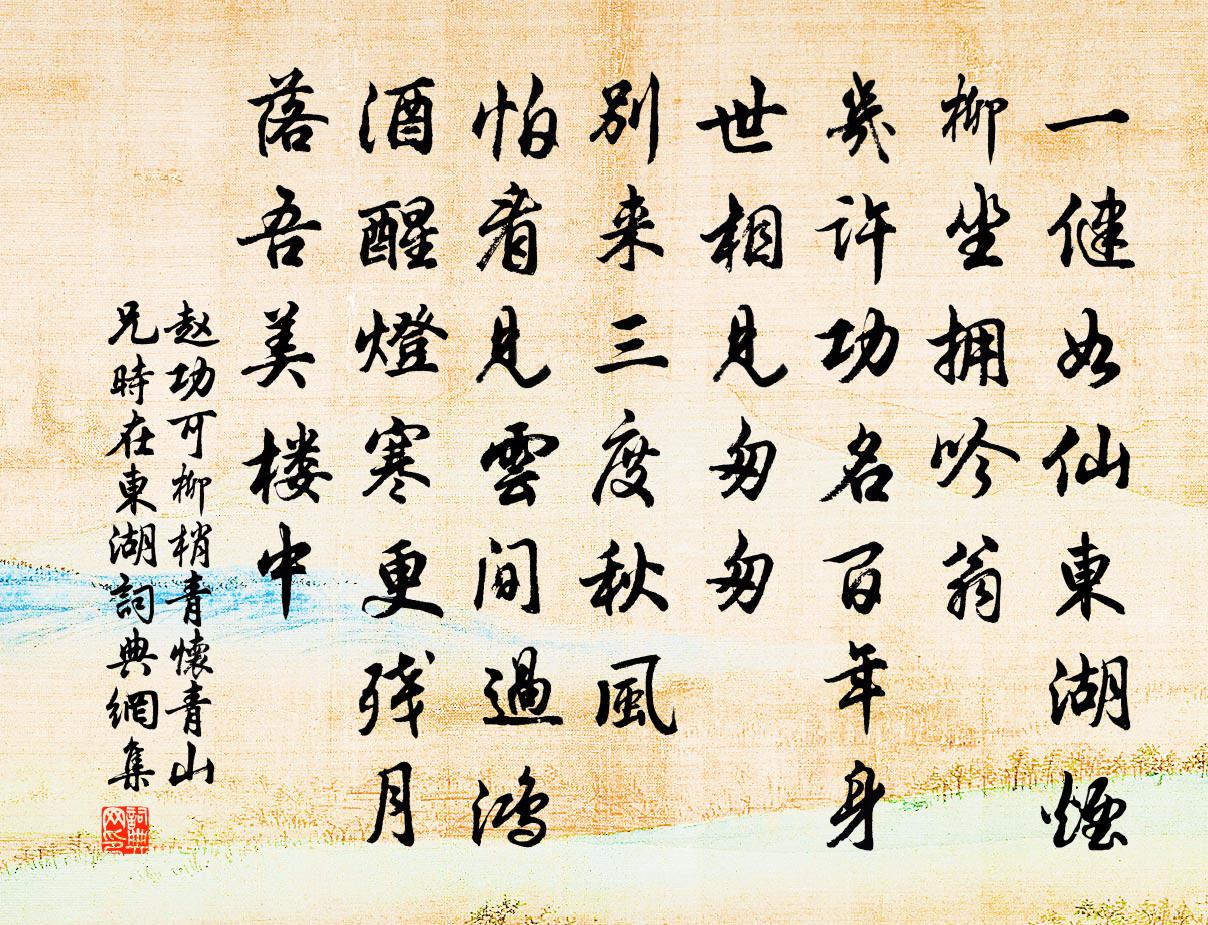 一健如仙東湖煙
柳坐拥吟翁
幾许功名百年身
世相見匆匆
别来三度秋風
怕看見雲间過鴻
酒醒燈寒更残月
落吾美楼中
赵功可柳梢青懐青山
兄時在東湖詞典網集
詞典网印